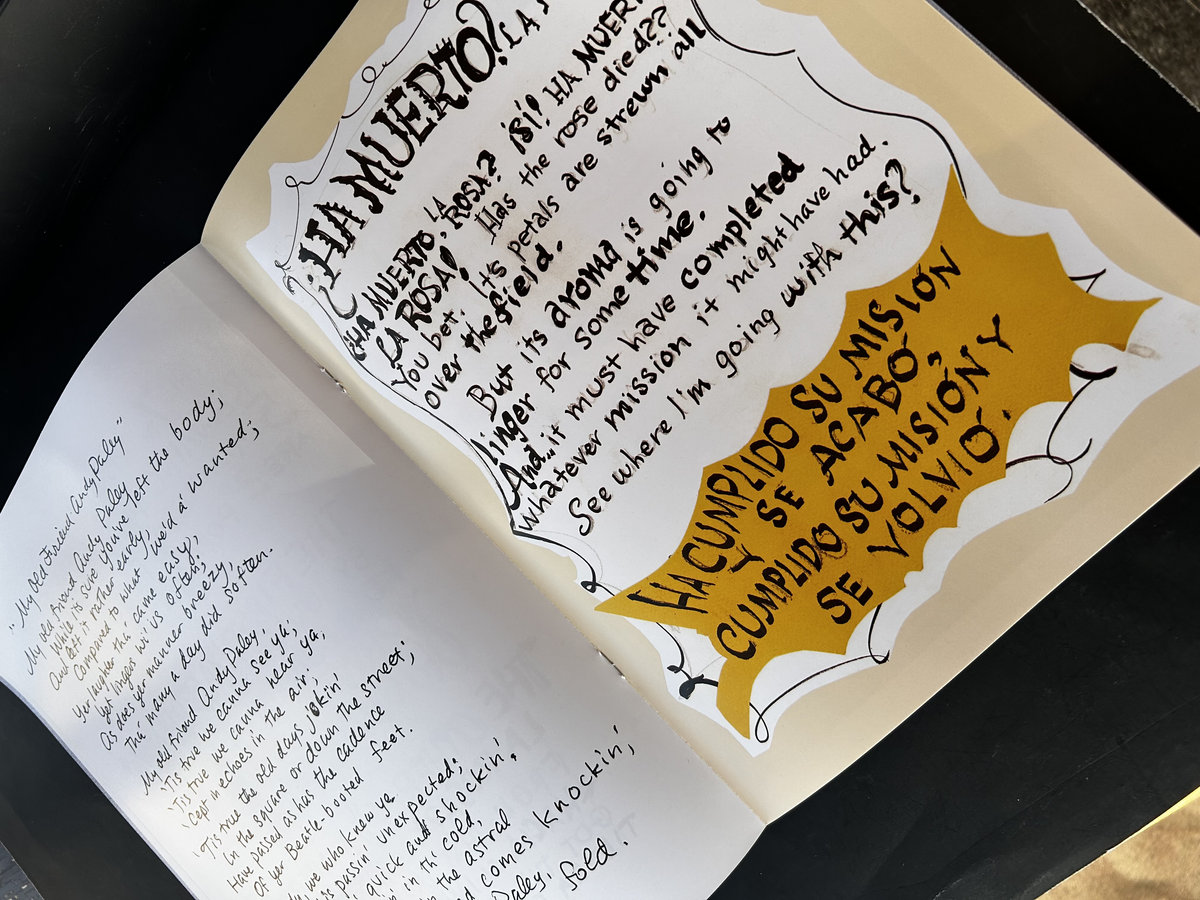 "My Old Friend Andy Paley"
My old friend Andy Paley
While its sure you've left the body,
And left it rather early,
Compared to what we'd a' wanted,
Yer laughter tha came easy,
Yet lingers wi' us often;
As does yer manner breezy,
Tha' many a day did soften.
My old friend Andy Paley,
'Tis true we canna see ya;
'Tis true we canna hear ya,
'Cept in echoes in the air;
'Tis true the old days jokin'
In the square or down the street;
Have passed as has the cadence
Of yer Beatle-booted feet.
we who knew ye
passin' unexpected;
quick and shockin';
in th' cold,
the astral
comes knockin',
Paley, fold.
¿HA MUERTO? LA
¿HA MUERTO, LA ROSA? ¡SÍ! HA MUERTO
LA ROSA! Has the rose died??
You bet, it's petals are strewn all
over the field.
But its aroma is going to
linger for some time.
And... it must have completed
whatever mission it might have had.
See where I'm going with this?
HA CUMPLIDO SU MISIÓN
Y SE ACABÓ,
CUMPLIDO SU MISIÓN Y
SE VOLVIÓ.